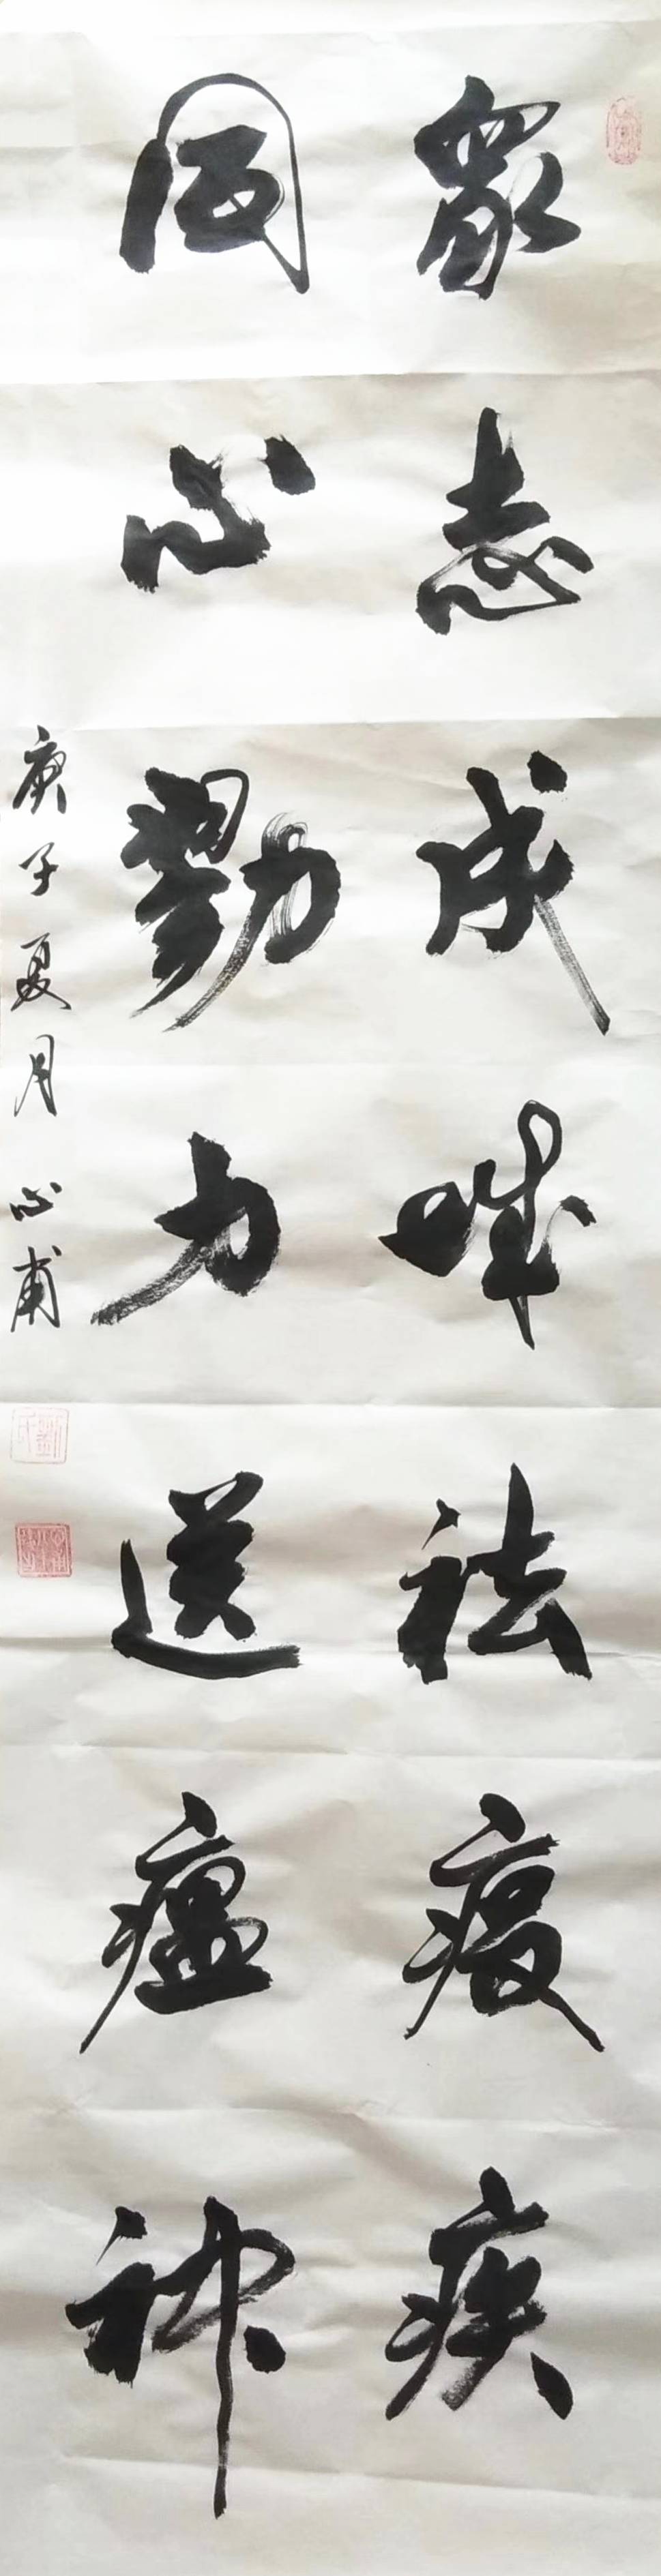 眾志成城祛疫疾
同心勠力送瘟神
庚子夏月心甫